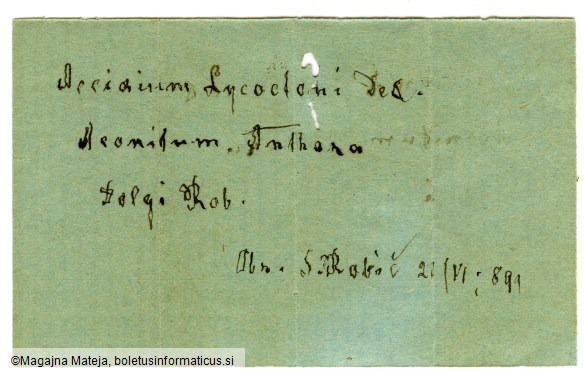 Aecidium Lycoctoni DC.
Aconitum. Anthora
Dolgi Rob.
Obs. S Robič 21/VI; 891
©Magajna Mateja, boletusinformaticus.si